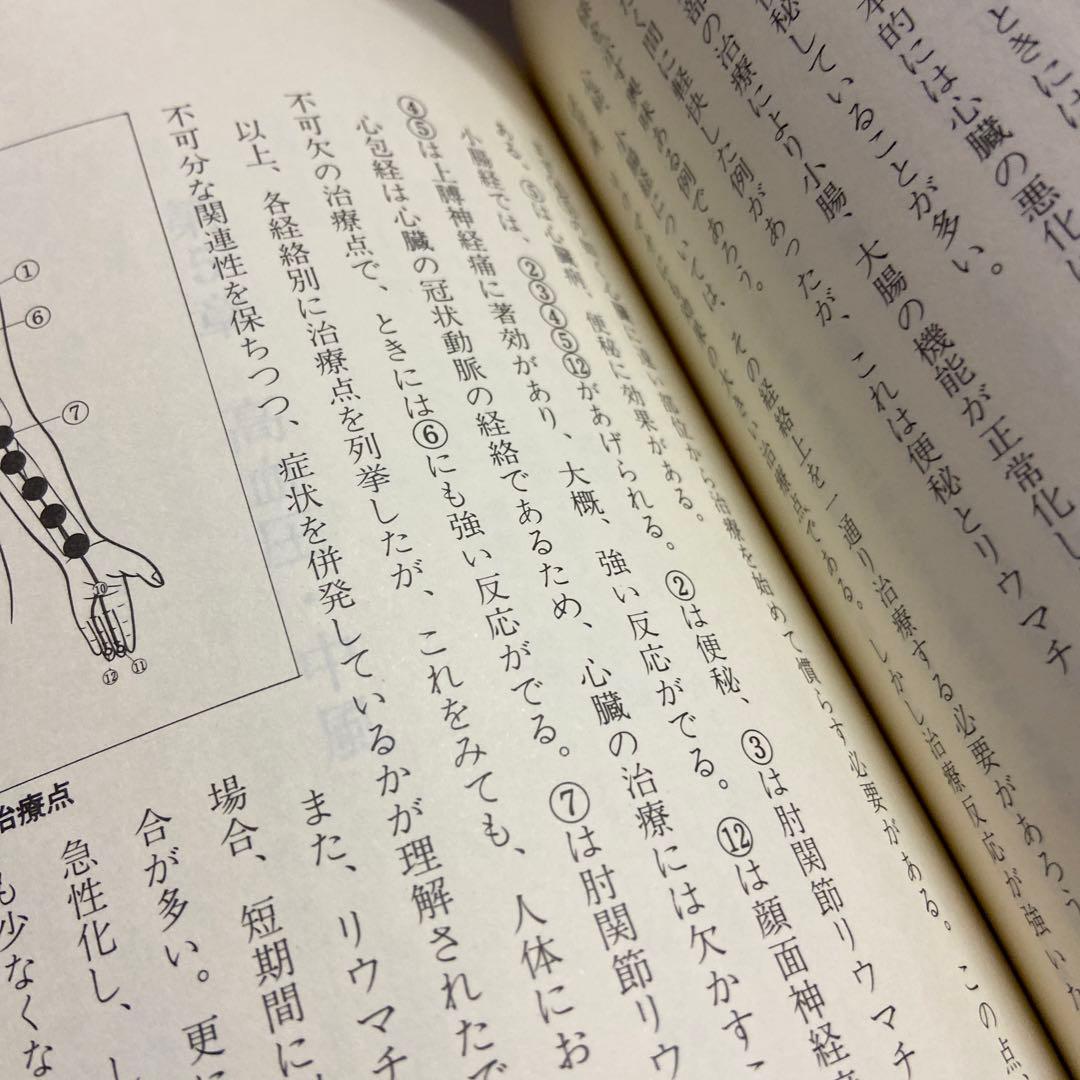 ときには
本的には心臓の悪化
秘していることが多い。
部の治療により小腸、大腸の機能が正常化し
く間に軽快した例があったが、これは便秘とリウマチ
す興味ある例であろう。
小腸経については、その経絡上を一通り治療する必要があろう
の大きい治療点である。しかし治療反応が強いた
遠い部位から治療を始めて慣らす必要がある。この点、
ある。⑤は心臓病、便秘に効果がある。
小腸経では、②③④⑤⑫があげられる。②は便秘、③は肘関節リウマチ
④⑤は上膊神経痛に著効があり、大概、強い反応がでる。⑫は顔面神経
心包経は心臓の冠状動脈の経絡であるため、心臓の治療には欠かすこ
不可欠の治療点で、ときには⑥にも強い反応がでる。⑦は肘関節リウ
以上、各経絡別に治療点を列挙したが、これをみても、人体にお
不可分な関連性を保ちつつ、症状を併発しているかが理解されたで
また、リウマチ
場合、短期間に
合が多い。更に
急性化し、
も少なくな
①
⑥
⑦
⑩
⑪
⑫
治療点